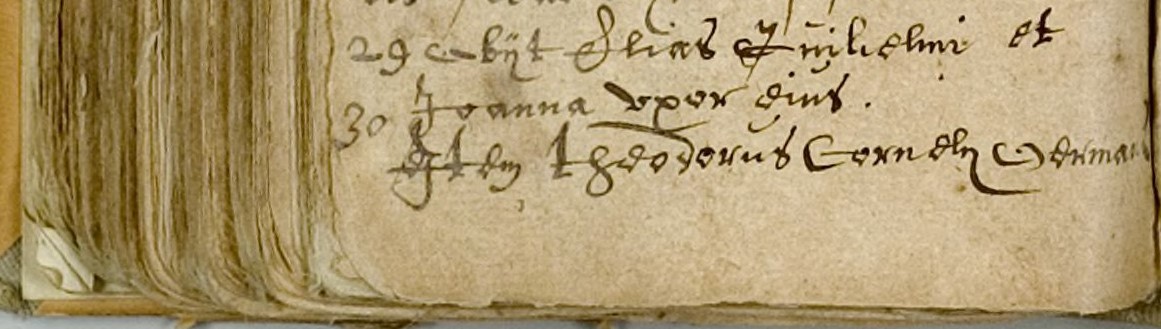 29 Obijt Elias Guilielmi et
30 Joanna vxor eius.
Item theodorus Cornelij